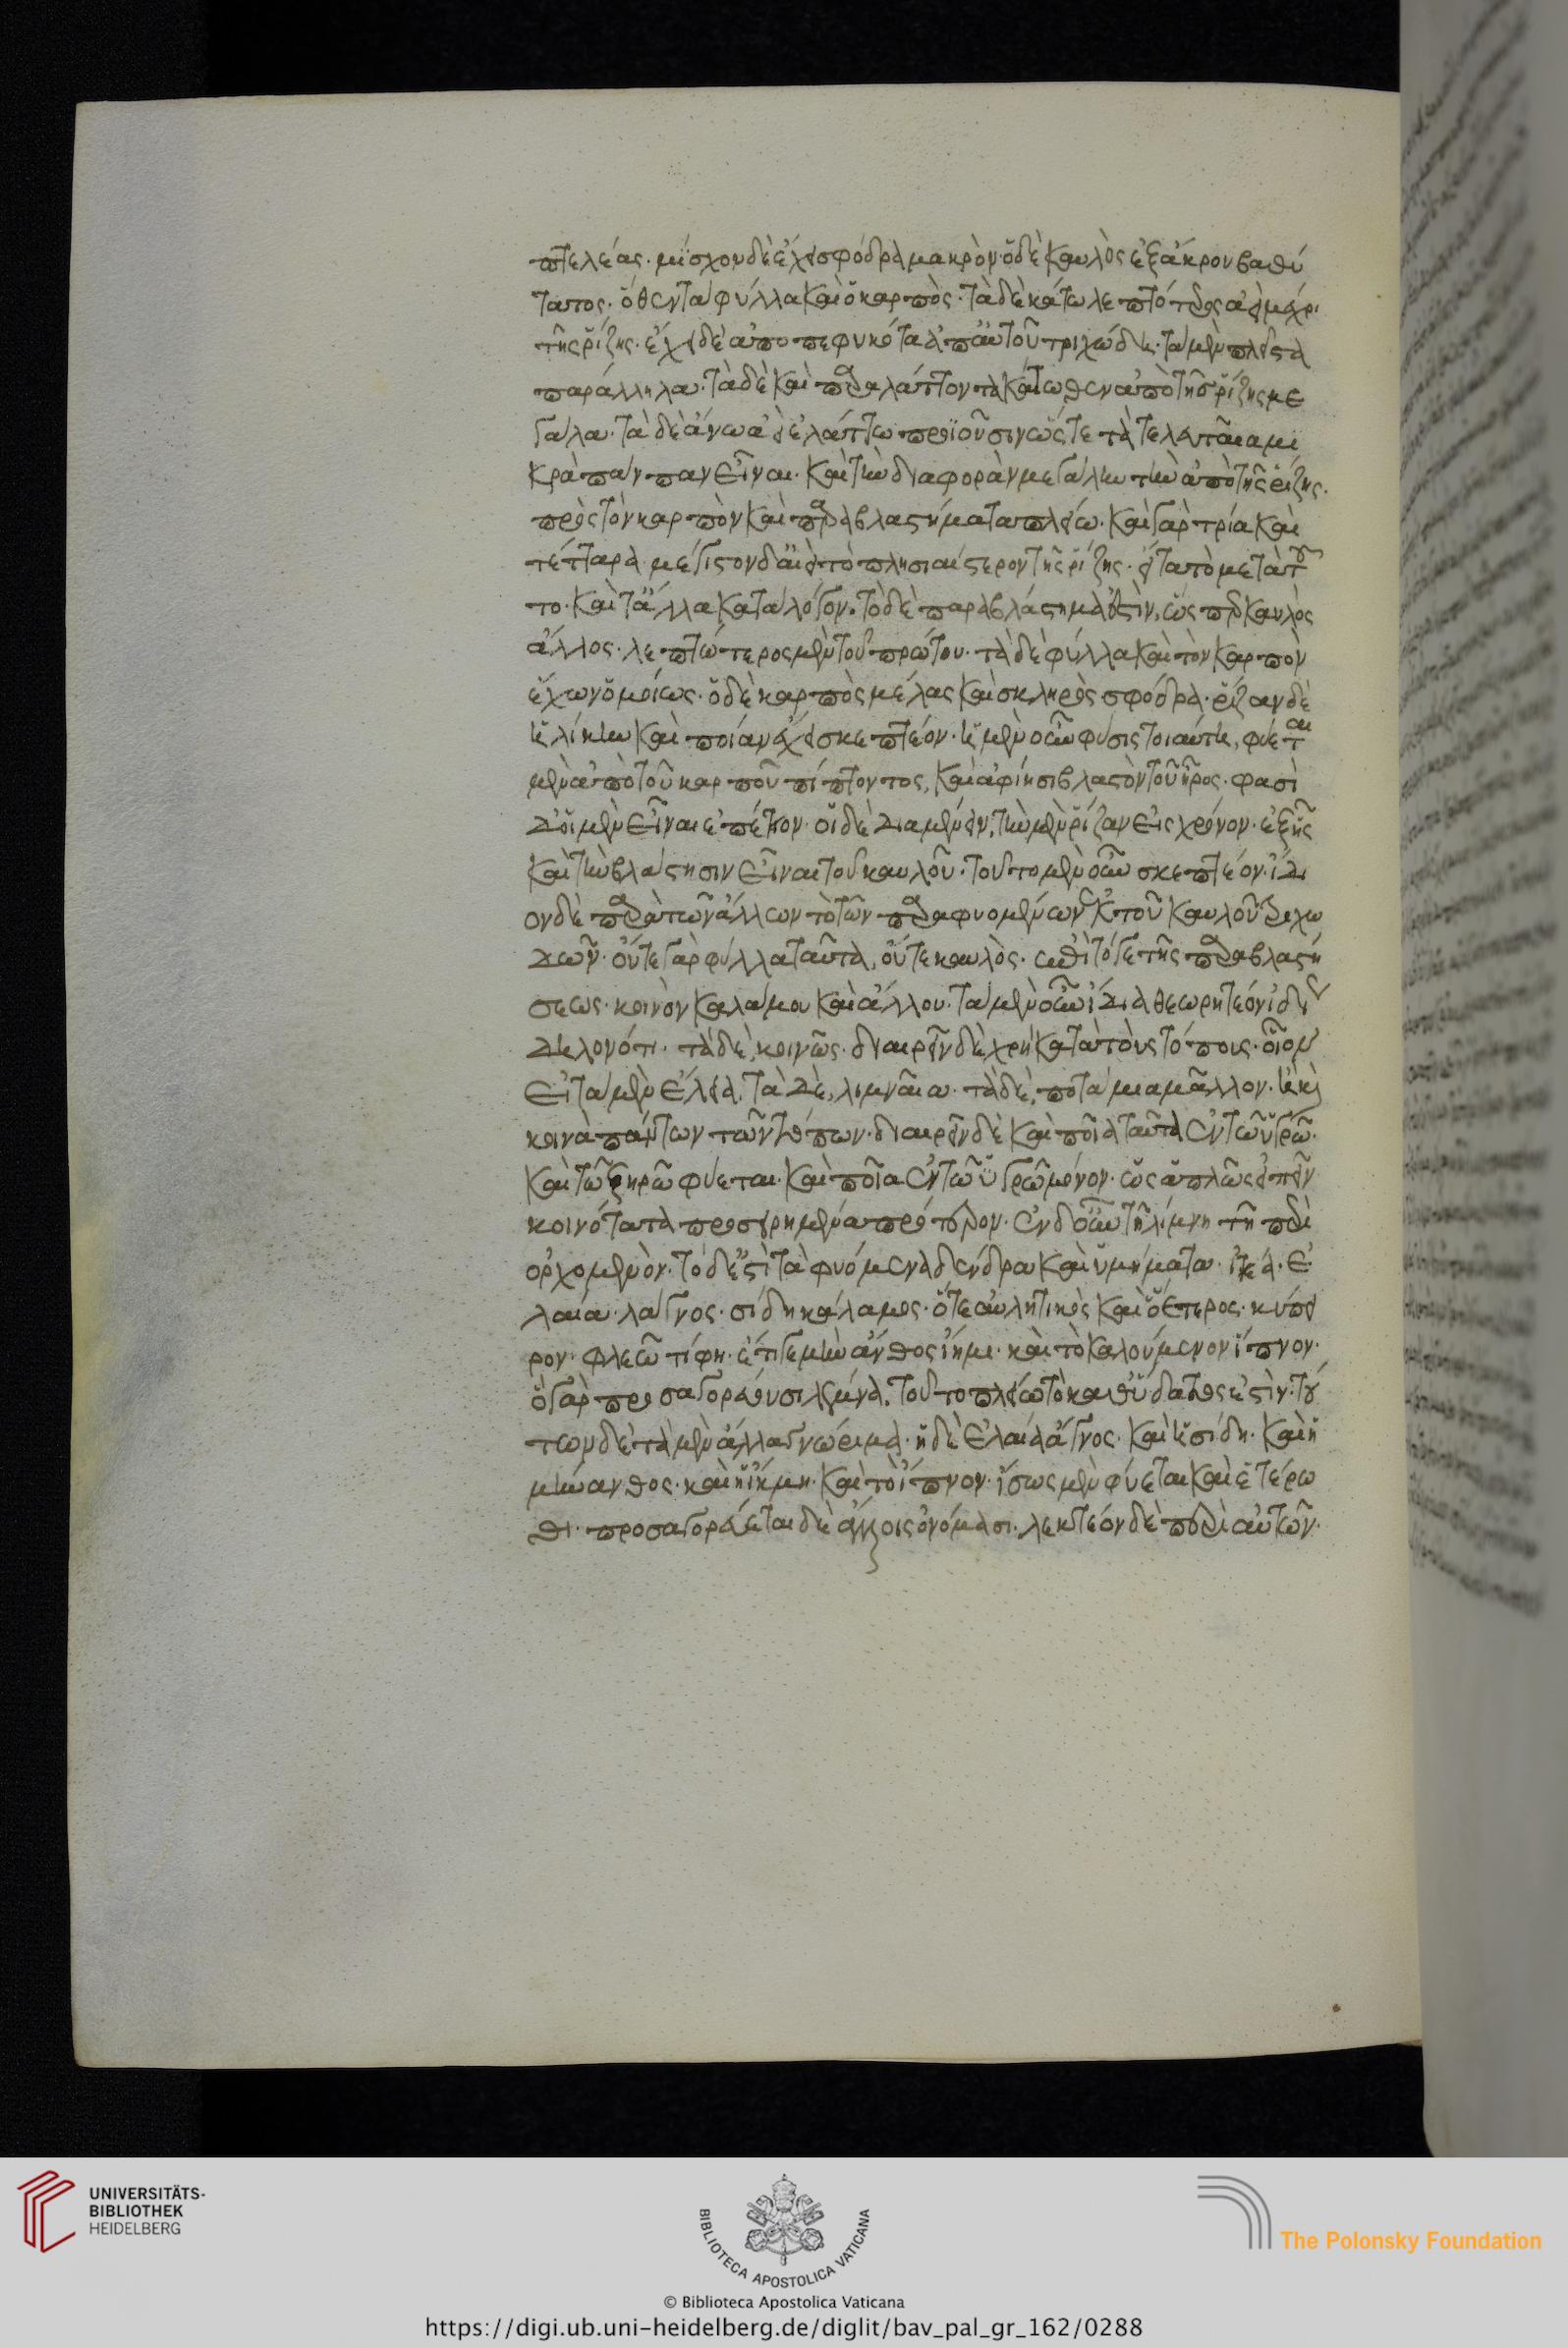 πτελέας· μίσχον δὲ ἔχει σφόδρα μακρὸν· ὁ δὲ καυλὸς ἐξ ἄκρου βαθύ
τατος· ὅθεν τὰ φύλλα καὶ ὁ καρπὸς· τὰ δὲ κάτω λεπτότερος ἀεὶ μέχρι
τῆς ῥίζης· ἔχει δὲ ἀποπεφυκότα ἀπ' αὐτοῦ τριχώδη· τὰ μὲν πλεῖστα
παράλληλα· τὰ δὲ καὶ παραλάττοντα κάτωθεν ἀπὸ τῆς ῥίζης με
γάλα· τὰ δὲ ἄνω ἀεὶ ἐλάττω προϊοῦσιν ὥστε τὰ τελευταῖα μι
κρὰ πάνπαν εἶναι· καὶ τὴν διαφορὰν μεγάλην τὴν ἀπὸ τῆς ῥίζης·
πρὸς τὸν καρπὸν καὶ παραβλαστήματα πλείω· καὶ γὰρ τρία καὶ
τέτταρα μέγιστον δ' ἀεὶ τὸ πλησιαίτερον τῆς ῥίζης· εἶτα τὸ μετὰ τοῦ
το· καὶ τἄλλα κατὰ λόγον· τὸ δὲ παραβλάστημά ἐστιν, ὥσπερ καυλὸς
ἄλλος· λεπτώτερος μὲν τοῦ πρώτου· τὰ δὲ φύλλα καὶ τὸν καρπὸν
ἔχων ὁμοίως· ὁ δὲ καρπὸς μέλας καὶ σκληρὸς σφόδρα· ῥίζαν δὲ
ἡλίκην καὶ ποίαν ἔχει σκεπτέον· ἡ μὲν οὖν φύσις τοιαύτη, φύεται
μὲν ἀπὸ τοῦ καρποῦ πίπτοντος, καὶ ἀφίησι βλαστὸν τοῦ ἦρος· φασὶ
δ' οἱ μὲν εἶναι ἐπέτειον· οἱ δὲ διαμένειν, τὴν μὲν ῥίζαν εἰς χρόνον· ἐξ ἧς
καὶ τὴν βλάστησιν εἶναι τοῦ καυλοῦ· τοῦτο μὲν οὖν σκεπτέον· ἴδι
ον δὲ παρὰ τῶν ἄλλων τὸ τῶν παραφυομένων ἐκ τοῦ καυλοῦ τριχω
δῶν· οὔτε γὰρ φύλλα ταῦτα, οὔτε καυλὸς· ἐπεὶ τό γε τῆς παραβλαστή
σεως· κοινὸν καλάμου καὶ ἄλλου· τὰ μὲν οὖν ἴδια θεωρητέον ἰδίως
δηλονότι· τὰ δὲ, κοινῶς· διαιρεῖν δὲ χρὴ κατὰ τοὺς τόπους· οἷον
εἰ τὰ μὲν ἕλεια, τὰ δὲ, λιμναῖα· τὰ δὲ, ποτάμια μᾶλλον· ἢ καὶ
κοινὰ πάντων τῶν τόπων· διαιρεῖν δὲ καὶ ποῖα ταῦτα ἐν τῶ ὑγρῶ·
καὶ τῶ ξηρῶ φύεται· καὶ ποῖα ἐν τῶ ὑγρῶ μόνον· ὡς ἁπλῶς εἰπεῖν
κοινότατα προσειρημένα πρότερον· ἐν δ' οὖν τῆ λίμνη τῆ περὶ
ὀρχομενὸν· τό δ' ἐστὶ τὰ φυόμενα δένδρα καὶ ὑμήματα· ἰτέα· ἐ
λαία· λάγνος· σίδη κάλαμος· ὅ τε αὐλητικὸς καὶ ὁ ἕτερος· κύπει
ρον· φλεῶ τίφη· ἔτι γε μὴν ἄνθος ἴημι· καὶ τὸ καλούμενον ἴπνον·
ὃ γὰρ προσαγορεύουσι λέμνα, τούτο πλείω τὸ καθ' ὕδατός ἐστιν· τού
των δὲ τὰ μὲν ἄλλα γνώριμα· ἡ δὲ ἐλαία ἄγνος· καὶ ἡ σίδη· καὶ ἡ
μήνανθος· καὶ ἡ ἴκμη· καὶ τὸ ἴπνον· ἴσως μὲν φύεται καὶ ἑτέρω
θι· προσαγορεύεται δὲ ἄλλοις ὀνόμασι· λεκτέον δὲ περὶ αὐτῶν·
UNIVERSITÄTS-
BIBLIOTHEK
HEIDELBERG
BIBLIOTECA APOSTOLICA VATICANA
The Polonsky Foundation
© Biblioteca Apostolica Vaticana
https://digi.ub.uni-heidelberg.de/diglit/bav_pal_gr_162/0288